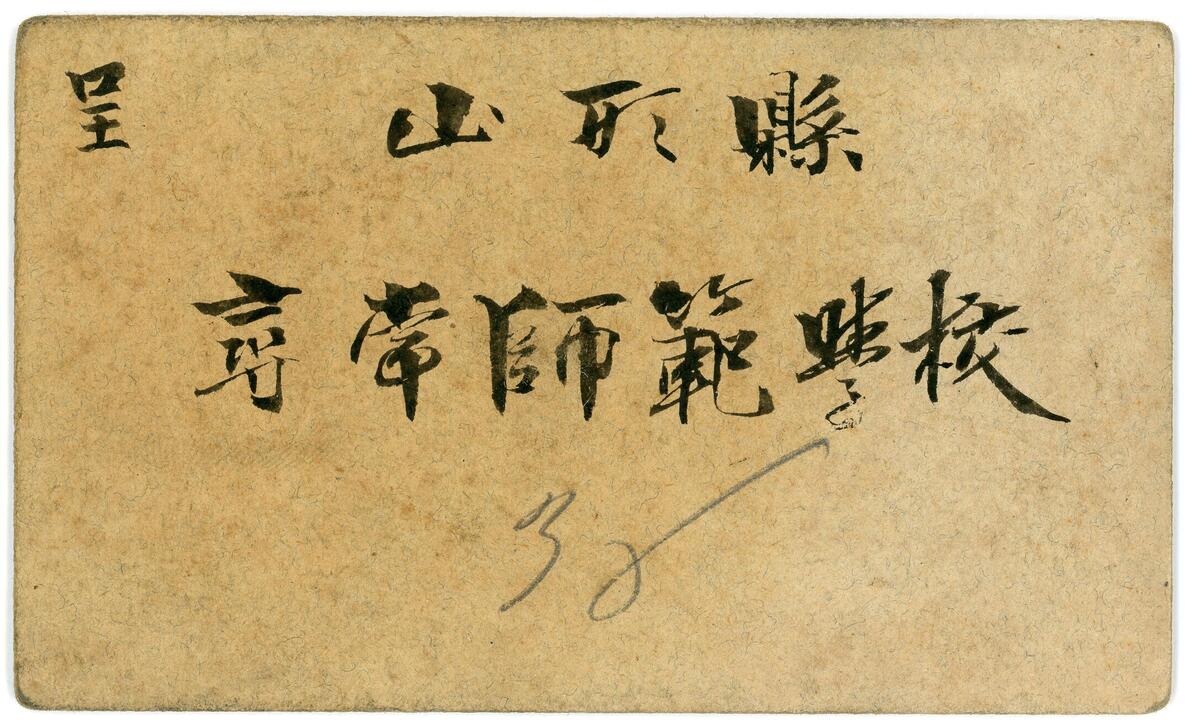 呈
山形縣
尋常師範學校